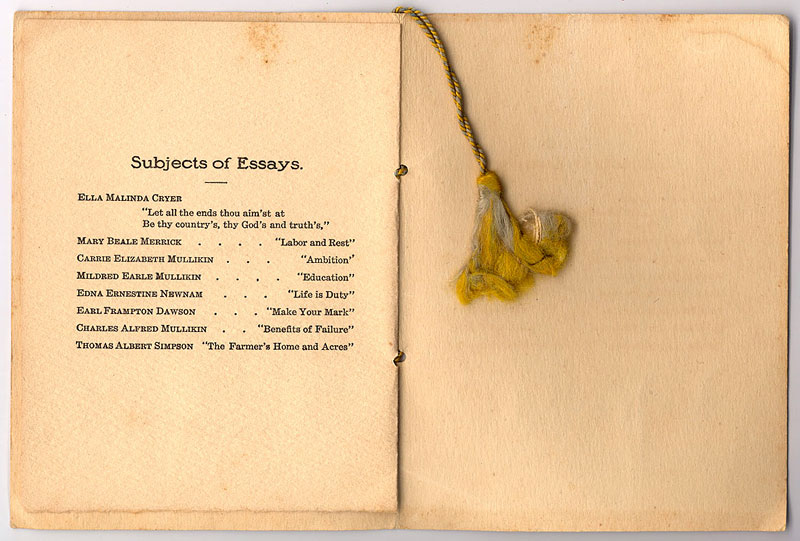 Subjects of Essays.
Ella Malinda Cryer
"Let all the ends thou aim'st at
Be thy country's, thy God's and truth's,"
Mary Beale Merrick . . . . "Labor and Rest"
Carrie Elizabeth Mullikin . . . "Ambition"
Mildred Earle Mullikin . . . . "Education"
Edna Ernestine Newnam . . . "Life is Duty"
Earl Frampton Dawson . . . "Make Your Mark"
Charles Alfred Mullikin . . "Benefits of Failure"
Thomas Albert Simpson "The Farmer's Home and Acres"